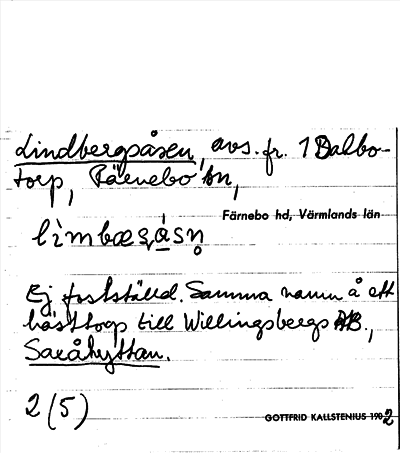 Lindbergsåsen, avs. fr. 1 Dalbo-
torp, Färnebo sn,
Färnebo hd, Värmlands län
lìmbæʂåsṇ
Ej fastställd. Samma namn å ett
hästtorp till Willingsbergs AB.,
Saxåhyttan.
2 (5)
GOTTFRID KALLSTENIUS 1902